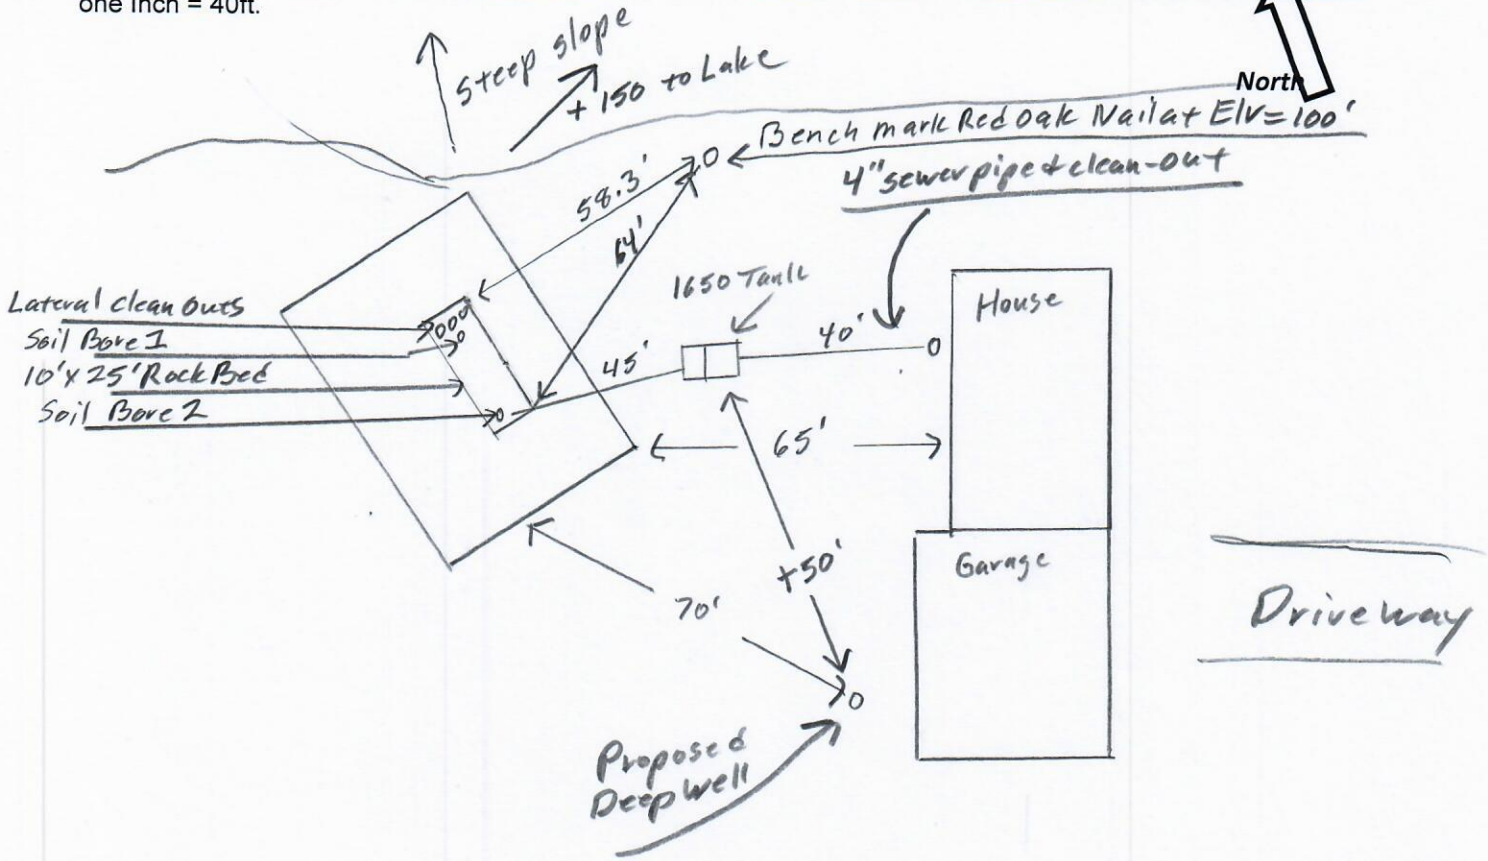 one Inch = 40ft.
Steep slope
+ 150 to Lake
North
Bench mark Red Oak Nail at Elv=100'
4" sewer pipe & clean-out
58.3'
64'
1650 Tank
House
Lateral clean outs
Soil Bore 1
10' x 25' Rock Bed
Soil Bore 2
45'
40'
65'
+50'
Garage
70'
Driveway
Proposed
Deep Well